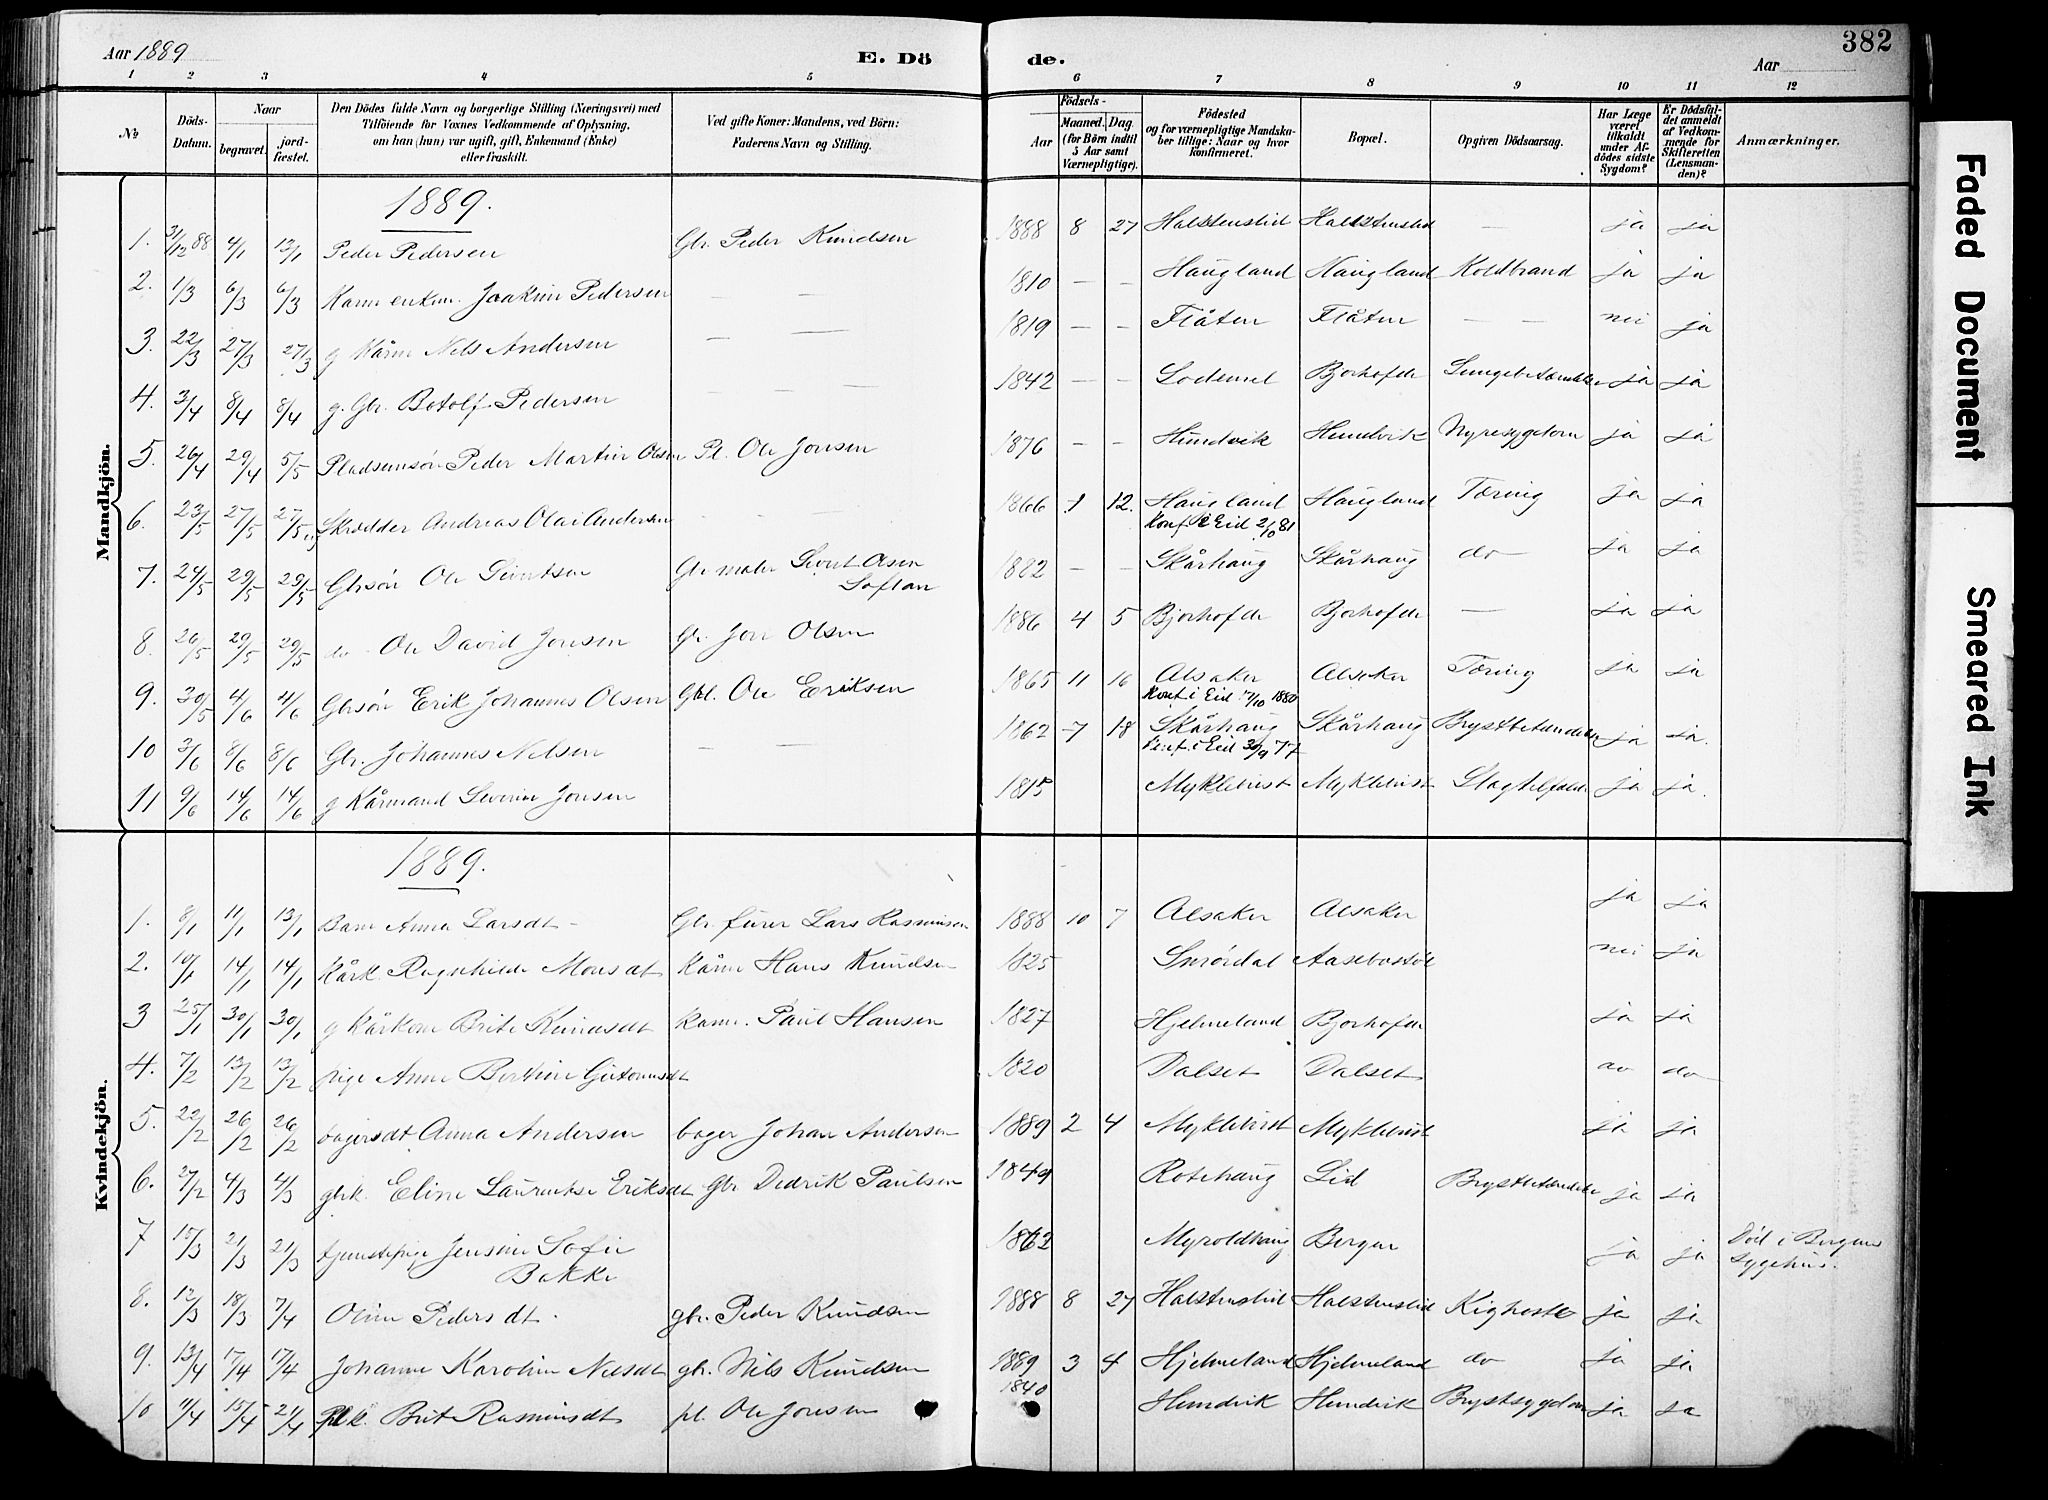 Aar 1889
E. Dö
de.
Aar
382
1 2 3 4 5 6 7 8 9 10 11 12
No
Döds-Datum.
Naar
begravet.
jord-fæstet.
Den Dödes fulde Navn og borgerlige Stilling (Næringsvei) med
Tilföiende for Voxnes Vedkommende af Oplysning,
om han (hun) var ugift, gift, Enkemand (Enke)
eller fraskilt.
Ved gifte Koner: Mandens, ved Börn:
Faderens Navn og Stilling.
Födsels-
Aar
Maaned. Dag
(for Börn indtil
5 Aar samt
Værnepligtige).
Födested
og for værnepligtige Mandska-
ber tillige: Naar og hvor
konfirmeret.
Bopæl.
Opgiven Dödsaarsag.
Har Læge
været
tilkaldt
under Af-
dödes sidste
Sygdom?
Er Dödsfal-
det anmeldt
af Vedkom-
mende for
Skifteretten
(Lensman-
den)?
Anmærkninger.
Mandkjön.
1889.
1. 31/12 88 4/1 13/1 Peder Pedersen Gbr. Peder Knudsen 1888 8 27 Halstenslid Halstenslid — ja ja
2. 1/3 6/3 6/3 Kaarm enkem. Joakim Pedersen — — 1810 — — Haugland Haugland Koldbrand ja ja
3. 22/3 27/3 27/3 g Kårm Nels Andersen — — 1819 — — Flåten Flåten — — nei ja
4. 3/4 8/4 8/4 g. Gbr. Botolf Pedersen — — 1842 — — Lodemel Bjorhofde Lungebetændelse ja ja
5. 26/4 29/4 5/5 Pladsemsön Peder Martin Olsen Pl. Ole Jonsen 1876 — — Hundvik Hundvik Nyresygdom ja ja
6. 23/5 27/5 27/5 Skrædder Andreas Olai Andersen — — 1866 1 12. Haugland Haugland Tæring ja ja
Konf. i Eid 2/10 81
7. 24/5 29/5 29/5 Gbrsön Ole Sivertsen Gbr maler Sivert Olsen 1882 — — Skårhaug Skårhaug do — ja ja
Loftan
8. 26/5 29/5 29/5 do — Ole David Jonsen Gbr. Jon Olsen 1886 4 5 Bjorhofde Bjorhofde — ja ja
9. 30/5 4/6 4/6 Gbrsön Erik Johannes Olsen Gbr. Ole Eriksen 1865 11 16 Alsaker Alsaker Tæring ja ja
Konf. i Eid 1880
10 3/6 8/6 8/6 Gbr. Johannes Nelsen — — 1862 7 18 Skårhaug Skårhaug Brystbetændelse ja ja.
Konf. i Eid 30/9 77
11 9/6 14/6 14/6 g Kårmand Severin Jonsen 1815 Myklebust Myklebust Slagtilfælde ja ja.
Kvindekjön.
1889.
1. 8/1 11/1 13/1 Barn Anna Larsdt — Gbr furer Lars Rasmusen 1888 10 7 Alsaker Alsaker ja ja
2. 10/1 14/1 14/1 Kårk. Ragnhilde Monsdt Kårm Hans Knudsen 1825 Smördal Aasebostöl nei ja
3 25/1 30/1 30/1 g Kårkone Brite Knudsdt Kårm. Paul Hansen 1827 Hjelmeland Bjorhofde ja ja
4. 7/2 13/2 13/2 pige Anne Bertine Guttormsdt 1820 Dalset Dalset do do
5. 22/2 26/2 26/2 bagersdt Anna Andersen bager Johan Andersen 1889 2 4 Myklebust Myklebust ja ja
6. 27/2 4/3 4/3 gbrk. Eline Laurentse Eriksdt Gbr Dedrik Paulsen 1849 Rotehaug Lid Brystbetændelse ja ja
7 15/3 21/3 21/3 tjenstepige Jensine Sofie 1862 Myroldhaug Bergen ja ja Död i Bergens
Bakke sygehus.
8. 12/3 18/3 7/4 Oline Pedersdt. gbr. Peder Knudsen 1888 8 27 Halstenslid Halstenslid Kighoste ja ja
9. 13/4 17/4 17/4 Johanne Karoline Nelsdt gbr. Nils Knudsen 1889 3 4 Hjelmeland Hjelmeland do ja ja
10 11/4 15/4 21/4 Plk. Brit Rasmusdt pl. Ole Jonsen 1840 Hundvik Hundvik Brystsygdom ja ja
Faded Document
Smeared Ink